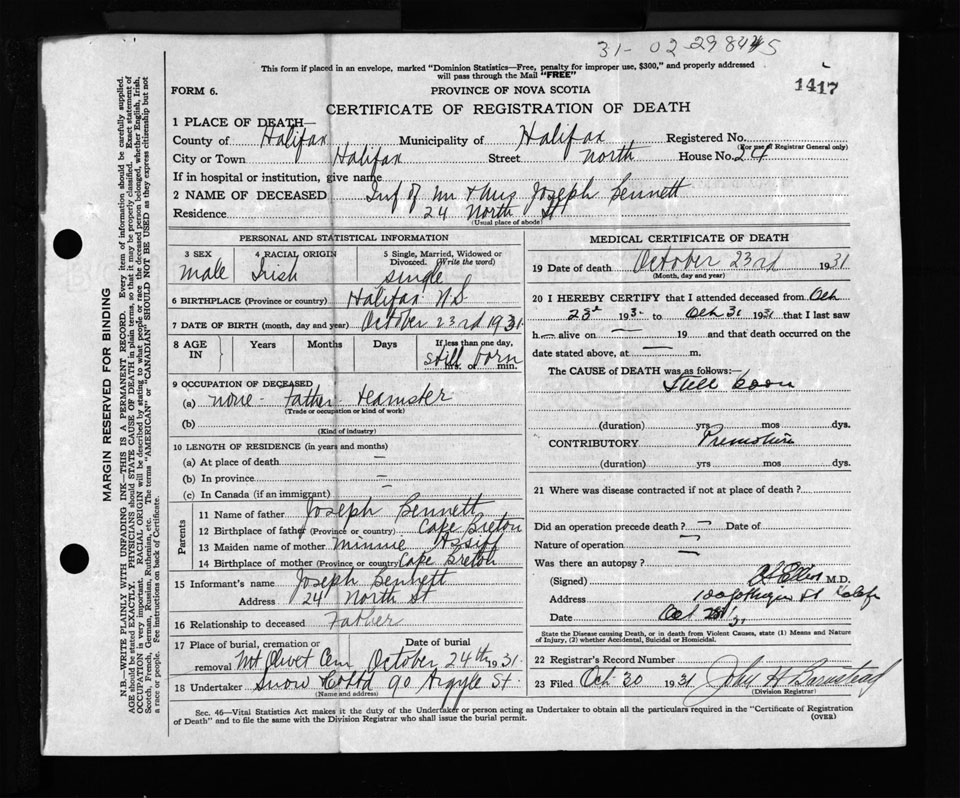 31-02-298445
This form if placed in an envelope, marked "Dominion Statistics—Free, penalty for improper use, $300," and properly addressed
will pass through the Mail "FREE"
1417
FORM 6.
PROVINCE OF NOVA SCOTIA
CERTIFICATE OF REGISTRATION OF DEATH
1 PLACE OF DEATH—
County of Halifax Municipality of Halifax Registered No.
(For use of Registrar General only)
City or Town Halifax Street North House No. 24
If in hospital or institution, give name
2 NAME OF DECEASED Inf of Mr & Mrs Joseph Bennett
Residence 24 North St
(Usual place of abode)
PERSONAL AND STATISTICAL INFORMATION
3 SEX
male
4 RACIAL ORIGIN
Irish
5 Single, Married, Widowed or
Divorced. (Write the word)
single
6 BIRTHPLACE (Province or country) Halifax N.S.
7 DATE OF BIRTH (month, day and year) October 23rd 1931
8 AGE IN
Years
Months
Days
If less than one day,
still born
hrs. or min.
9 OCCUPATION OF DECEASED
(a) none - Father - teamster
(Trade or occupation or kind of work)
(b)
(Kind of industry)
10 LENGTH OF RESIDENCE (in years and months)
(a) At place of death —
(b) In province —
(c) In Canada (if an immigrant) —
Parents
11 Name of father Joseph Bennett
12 Birthplace of father (Province or country) Cape Breton
13 Maiden name of mother Minnie Assiff
14 Birthplace of mother (Province or country) Cape Breton
15 Informant's name Joseph Bennett
Address 24 North St
16 Relationship to deceased Father
17 Place of burial, cremation or
removal Mt Olivet Cem
Date of burial
October 24th 1931
18 Undertaker Snow & Co Ltd 90 Argyle St.
(Name and address)
MEDICAL CERTIFICATE OF DEATH
19 Date of death October 23rd 1931
(Month, day and year)
20 I HEREBY CERTIFY that I attended deceased from Oct
23rd 193 to Oct 31 1931 that I last saw
h— alive on — 19 and that death occurred on the
date stated above, at — m.
The CAUSE of DEATH was as follows:—
Still born
(duration) yrs mos dys.
CONTRIBUTORY Premature
(duration) yrs mos dys.
21 Where was disease contracted if not at place of death?
Did an operation precede death? — Date of
Nature of operation —
Was there an autopsy? —
(Signed) M.D.
Address St Halifax
Date Oct 31
State the Disease causing Death, or in death from Violent Causes, state (1) Means and Nature
of Injury, (2) whether Accidental, Suicidal or Homicidal.
22 Registrar's Record Number
23 Filed Oct 30 1931 John H Barnstead
(Division Registrar)
Sec. 46—Vital Statistics Act makes it the duty of the Undertaker or person acting as Undertaker to obtain all the particulars required in the "Certificate of Registration
of Death" and to file the same with the Division Registrar who shall issue the burial permit.
(OVER)
MARGIN RESERVED FOR BINDING
N.B.—WRITE PLAINLY WITH UNFADING INK—THIS IS A PERMANENT RECORD. Every item of information should be carefully supplied.
AGE should be stated EXACTLY. PHYSICIANS should STATE CAUSE OF DEATH in plain terms, so that it may be properly classified. Exact statement of
OCCUPATION is very important. RACIAL ORIGIN will be described by stating to what people or race the deceased person belonged, whether English, Irish,
Scotch, French, German, Russian, Ruthenian, etc. The terms "AMERICAN" or "CANADIAN" SHOULD NOT BE USED as they express citizenship but not
a race or people. See instructions on back of Certificate.